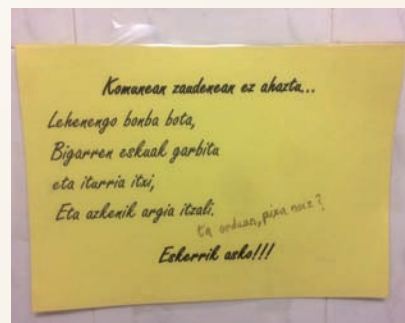 Komunean zaudenean ez ahaztu...
Lehenengo bonba bota,
Bigarren eskuak garbitu
eta iturria itxi,
Eta azkenik argia itzali.
ta orduan, pixa noiz?
Eskerrik asko!!!